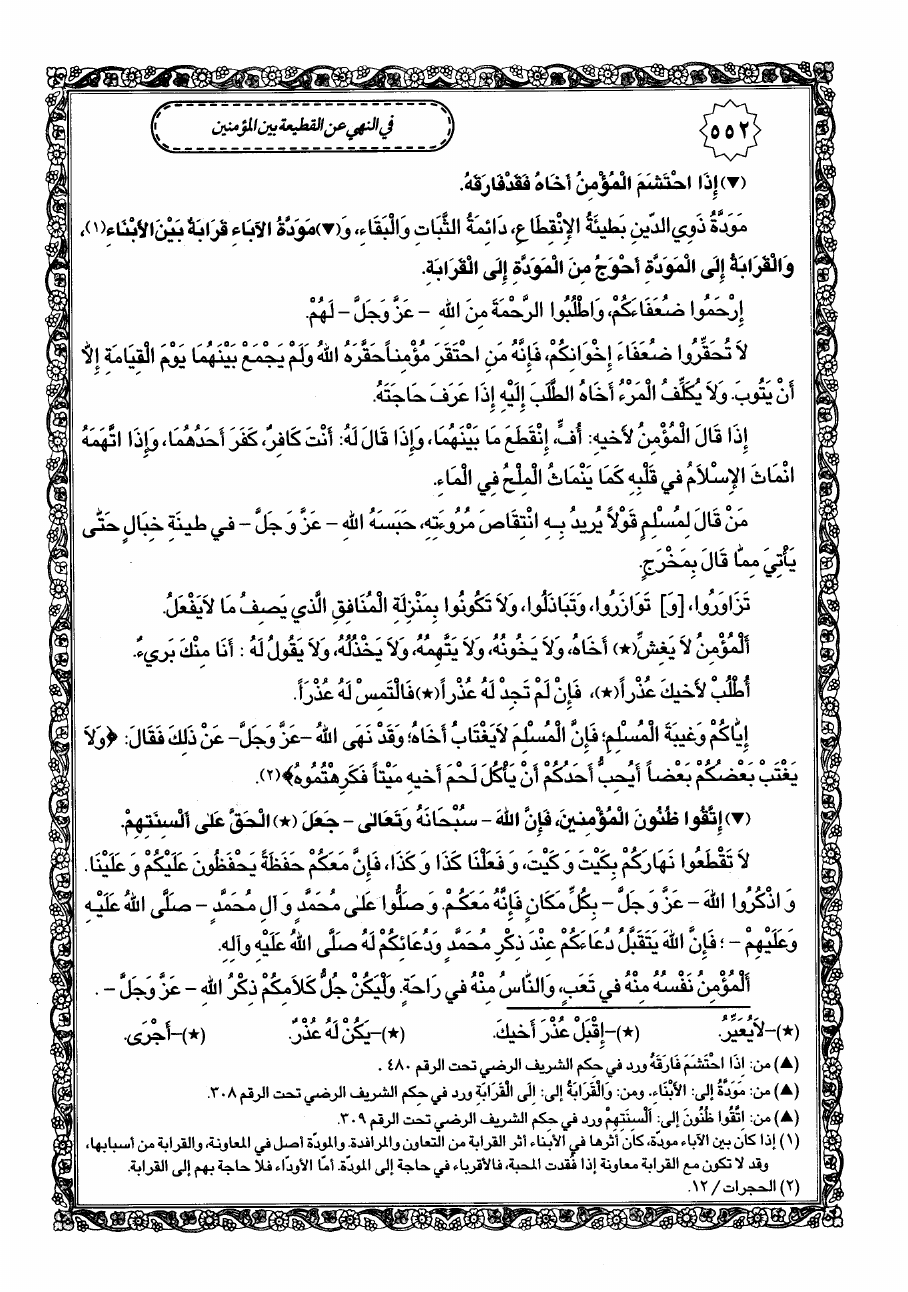 ٥٥٢
في النهي عن القطيعة بين المؤمنين
(▼) إِذَا احْتَشَمَ الْمُؤْمِنُ أَخَاهُ فَقَدْ فَارَقَهُ.
مَوَدَّةُ ذَوِي الدّينِ بَطيئَةُ الإِنْقِطَاعِ، دَائِمَةُ الثَّبَاتِ وَالْبَقَاءِ، وَ(▼) مَوَدَّةُ الآبَاءِ قَرَابَةٌ بَيْنَ الأَبْنَاءِ(١)،
وَالْقَرَابَةُ إِلَى الْمَوَدَّةِ أَحْوَجُ مِنَ الْمَوَدَّةِ إِلَى الْقَرَابَةِ.
إِرْحَمُوا ضُعَفَاءَكُمْ، وَاطْلُبُوا الرَّحْمَةَ مِنَ اللهِ - عَزَّ وَجَلَّ - لَهُمْ.
لاَ تُحَقِّرُوا ضُعَفَاءَ إِخْوَانِكُمْ، فَإِنَّهُ مَنِ احْتَقَرَ مُؤْمِناً حَقَّرَهُ اللهُ وَلَمْ يَجْمَعْ بَيْنَهُمَا يَوْمَ الْقِيَامَةِ إِلاَّ
أَنْ يَتُوبَ. وَلاَ يُكَلِّفُ الْمَرْءُ أَخَاهُ الطَّلَبَ إِلَيْهِ إِذَا عَرَفَ حَاجَتَهُ.
إِذَا قَالَ الْمُؤْمِنُ لأَخيهِ: أُفٍّ، إِنْقَطَعَ مَا بَيْنَهُمَا، وَإِذَا قَالَ لَهُ: أَنْتَ كَافِرٌ، كَفَرَ أَحَدُهُمَا، وَإِذَا اتَّهَمَهُ
انْمَاثَ الإِسْلاَمُ في قَلْبِهِ كَمَا يَنْمَاثُ الْمِلْحُ فِي الْمَاءِ.
مَنْ قَالَ لِمُسْلِمٍ قَوْلاً يُريدُ بِهِ انْتِقَاصَ مُرُوءَتِهِ، حَبَسَهُ اللهُ - عَزَّ وَجَلَّ - في طينَةِ خِبَالٍ حَتّى
يَأْتِيَ مِمَّا قَالَ بِمَخْرَجٍ.
تَزَاوَرُوا، [وَ] تَوَازَرُوا، وَتَبَاذَلُوا، وَلاَ تَكُونُوا بِمَنْزِلَةِ الْمُنَافِقِ الَّذي يَصِفُ مَا لاَ يَفْعَلُ.
أَلْمُؤْمِنُ لاَ يَغِشُّ(★) أَخَاهُ، وَلاَ يَخُونُهُ، وَلاَ يَتَّهِمُهُ، وَلاَ يَخْذُلُهُ، وَلاَ يَقُولُ لَهُ: أَنَا مِنْكَ بَريءٌ.
أُطْلُبْ لأَخيكَ عُذْراً(★)، فَإِنْ لَمْ تَجِدْ لَهُ عُذْراً(★) فَالْتَمِسْ لَهُ عُذْراً.
إِيَّاكُمْ وَغيبَةَ الْمُسْلِمِ؛ فَإِنَّ الْمُسْلِمَ لاَ يَغْتَابُ أَخَاهُ؛ وَقَدْ نَهَى اللهُ - عَزَّ وَجَلَّ - عَنْ ذلِكَ فَقَالَ: ﴿وَلاَ
يَغْتَبْ بَعْضُكُمْ بَعْضاً أَيُحِبُّ أَحَدُكُمْ أَنْ يَأْكُلَ لَحْمَ أَخيهِ مَيْتاً فَكَرِهْتُمُوهُ﴾(٢).
(▼) إِتَّقُوا ظُنُونَ الْمُؤْمِنينَ، فَإِنَّ اللهَ - سُبْحَانَهُ وَتَعَالى - جَعَلَ (★) الْحَقَّ عَلى أَلْسِنَتِهِمْ.
لاَ تَقْطَعُوا نَهَارَكُمْ بِكَيْتَ وَكَيْتَ، وَفَعَلْنَا كَذَا وَكَذَا، فَإِنَّ مَعَكُمْ حَفَظَةً يَحْفَظُونَ عَلَيْكُمْ وَعَلَيْنَا.
وَاذْكُرُوا اللهَ - عَزَّ وَجَلَّ - بِكُلِّ مَكَانٍ فَإِنَّهُ مَعَكُمْ. وَصَلُّوا عَلى مُحَمَّدٍ وَآلِ مُحَمَّدٍ - صَلَّى اللهُ عَلَيْهِ
وَعَلَيْهِمْ - ؛ فَإِنَّ اللهَ يَتَقَبَّلُ دُعَاءَكُمْ عِنْدَ ذِكْرِ مُحَمَّدٍ وَدُعَائِكُمْ لَهُ صَلَّى اللهُ عَلَيْهِ وَآلِهِ.
أَلْمُؤْمِنُ نَفْسُهُ مِنْهُ في تَعَبٍ، وَالنَّاسُ مِنْهُ في رَاحَةٍ. وَلْيَكُنْ جُلُّ كَلاَمِكُمْ ذِكْرُ اللهِ - عَزَّ وَجَلَّ - .
(★)-لاَ يُعَيِّرُ. (★)-إِقْبَلْ عُذْرَ أَخيكَ. (★)-يَكُنْ لَهُ عُذْرٌ. (★)-أَجْرى.
(▲) من: إِذَا احْتَشَمَ فَارَقَهُ ورد في حكم الشريف الرضي تحت الرقم ٤٨٠ .
(▲) من: مَوَدَّةُ إلى: الأَبْنَاءِ. ومن: وَالْقَرَابَةُ إلى: إِلَى الْقَرَابَةِ ورد في حكم الشريف الرضي تحت الرقم ٣٠٨.
(▲) من: اتَّقُوا ظُنُونَ إلى: أَلْسِنَتِهِمْ ورد في حكم الشريف الرضي تحت الرقم ٣٠٩.
(١) إذا كان بين الآباء مودة، كان أثرها في الأبناء أثر القرابة من التعاون والمرافدة. والمودّة أصل في المعاونة، والقرابة من أسبابها،
وقد لا تكون مع القرابة معاونة إذا فُقدت المحبة، فالأقرباء في حاجة إلى المودّة. أمّا الأودّاء فلا حاجة بهم إلى القرابة.
(٢) الحجرات / ١٢.